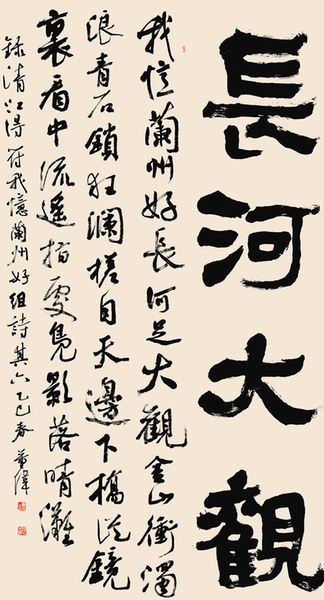 長河大觀
我憶蘭州好長河足大觀金山衝濁
浪青石鎖狂瀾槎自天邊下橋從鏡
裏看中流遙指處鳧影落晴灘
錄清江得符我憶蘭州好組詩其六乙巳春董偉